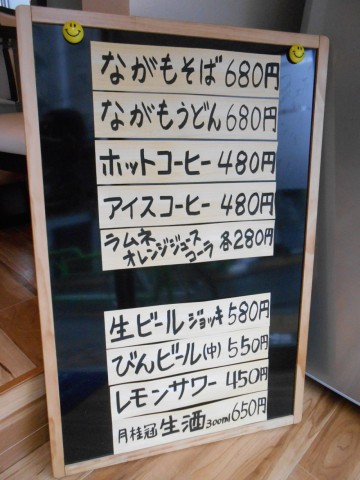 ながもそば 680円
ながもうどん 680円
ホットコーヒー 480円
アイスコーヒー 480円
ラムネ
オレンジジュース 各280円
コーラ
生ビール ジョッキ 580円
びんビール(中) 550円
レモンサワー 450円
月桂冠 生酒 300ml 650円